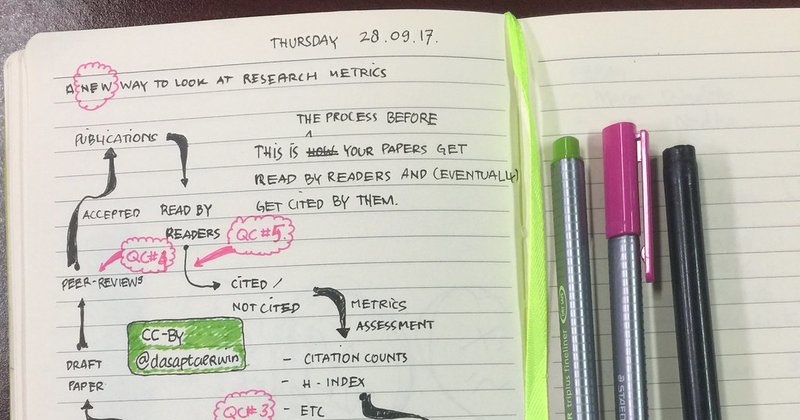 THURSDAY 28.09.17.
A NEW WAY TO LOOK AT RESEARCH METRICS
THE PROCESS BEFORE
PUBLICATIONS
THIS IS HOW YOUR PAPERS GET
READ BY READERS AND (EVENTUALLY)
GET CITED BY THEM.
ACCEPTED
READ BY
READERS
QC #5
QC #4
PEER-REVIEWS
CITED /
NOT CITED
METRICS
ASSESSMENT
CC-BY
@dasaptaerwin
DRAFT
PAPER
- CITATION COUNTS
- H-INDEX
- ETC
QC #3
triplus fineliner